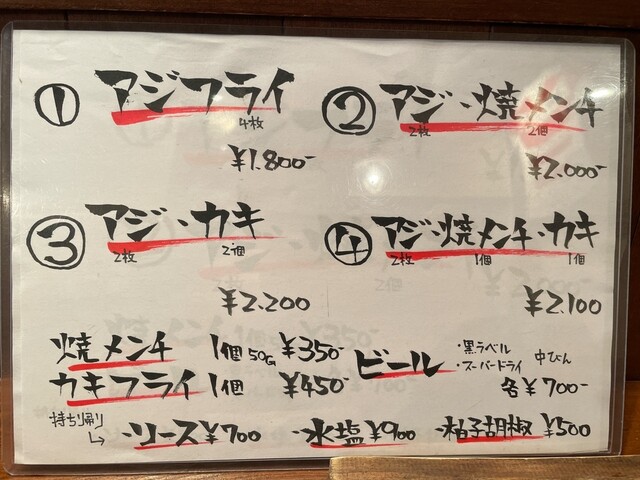 ① アジフライ
4枚
¥1.800-
② アジ・焼メンチ
2枚 2個
¥2.000-
③ アジ・カキ
2枚 2個
¥2.200
④ アジ・焼メンチ・カキ
2枚 1個 1個
¥2.100
焼メンチ 1個 50G ¥350-
カキフライ 1個 ¥450-
ビール
・黒ラベル
・スーパードライ
中びん
各¥700-
持ち帰り
・ソース¥700
・水塩¥900
・柚子胡椒¥500